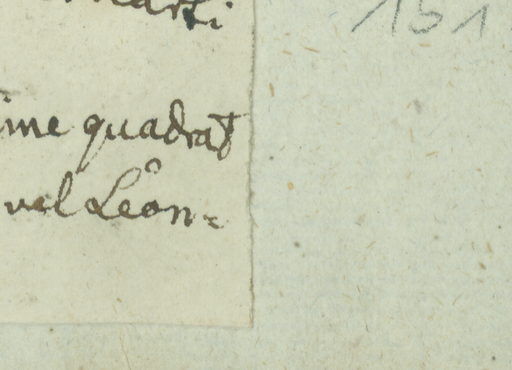 151
ime quadrat
vel Leon=